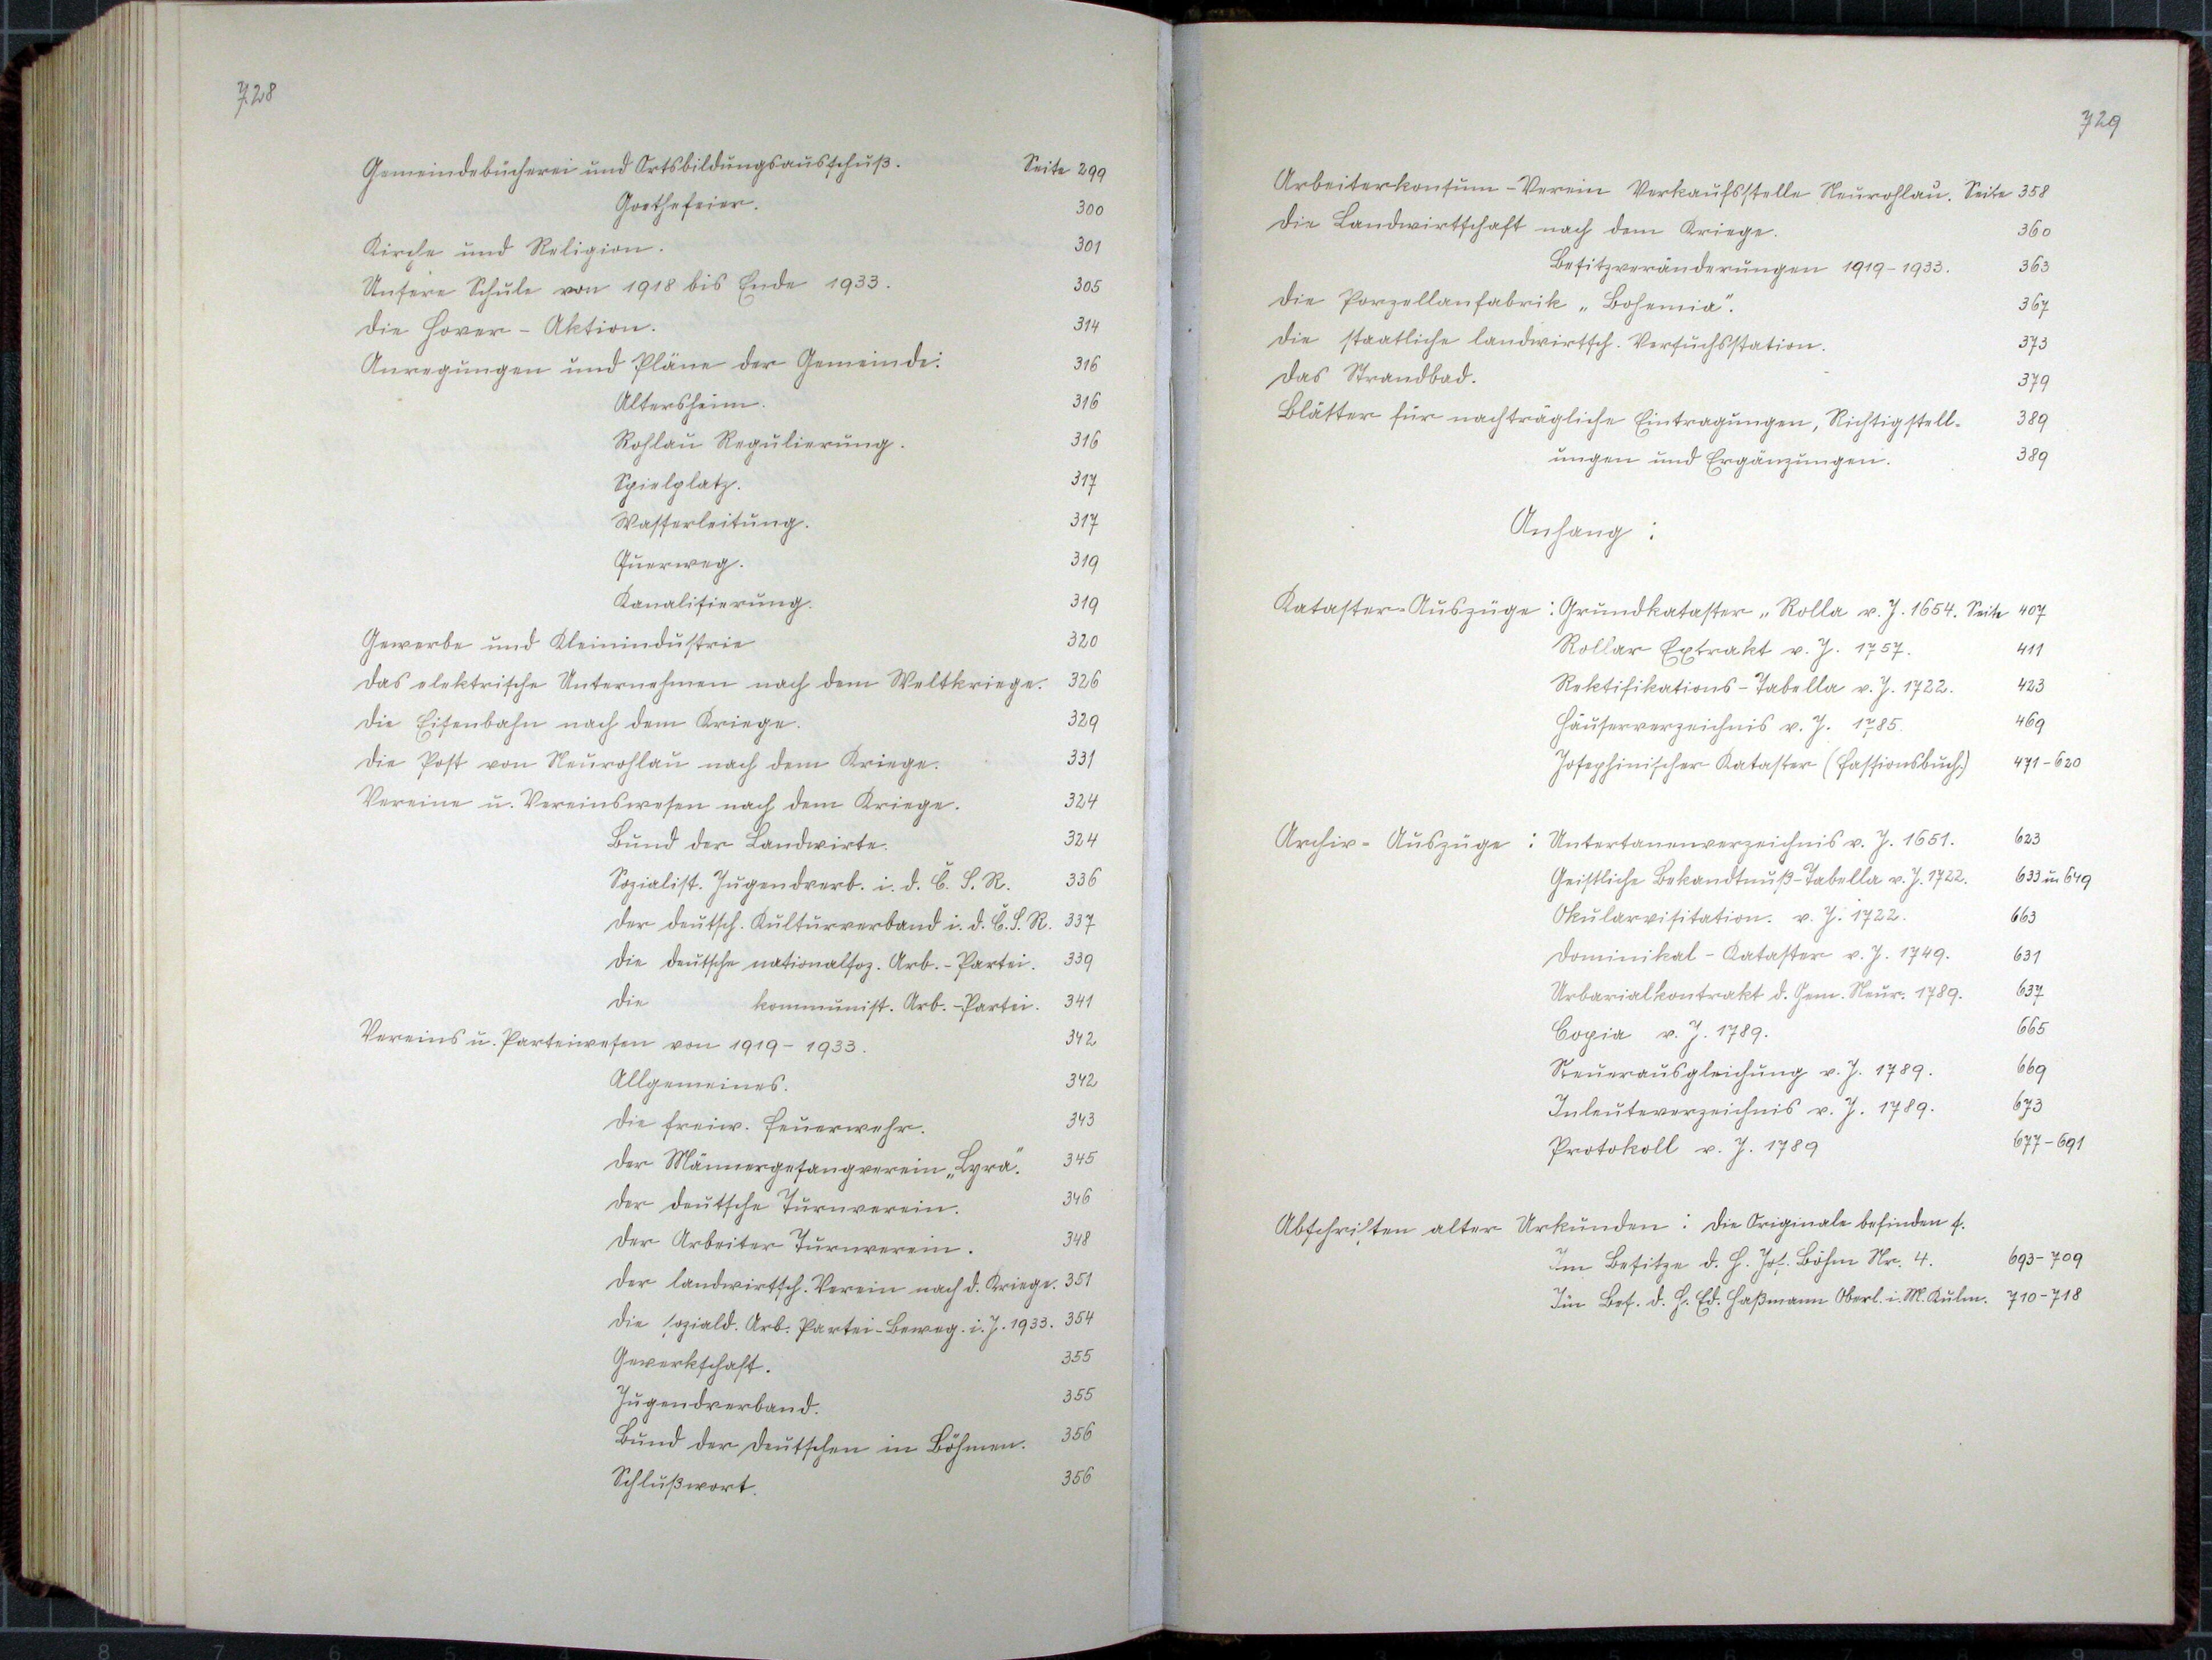 728
Gemeindebücherei und Ortsbildungsausschuß. Seite 299
Goethefeier. 300
Kirche und Religion. 301
Unsere Schule von 1918 bis Ende 1933. 305
Die Hover-Aktion. 314
Anregungen und Pläne der Gemeinde: 316
Altersheim. 316
Rohlau Regulierung. 316
Spielplatz. 317
Wasserleitung. 317
Querweg. 319
Kanalisierung. 319
Gewerbe und Kleinindustrie 320
Das elektrische Unternehmen nach dem Weltkriege. 326
Die Eisenbahn nach dem Kriege. 329
Die Post von Neurohlau nach dem Kriege. 331
Vereine u. Vereinswesen nach dem Kriege. 324
Bund der Landwirte. 324
Sozialist. Jugendverb. i. d. Č. S. R. 336
Der deutsch. Kulturverband i. d. Č. S. R. 337
Die deutsche nationalsoz. Arb.-Partei. 339
Die kommunist. Arb.-Partei. 341
Vereins u. Parteiwesen von 1919-1933. 342
Allgemeines. 342
Die freiw. Feuerwehr. 343
Der Männergesangverein „Lyra". 345
Der deutsche Turnverein. 346
Der Arbeiter Turnverein. 348
Der landwirtsch. Verein nach d. Kriege. 351
Die soziald. Arb. Partei-Beweg. i. J. 1933. 354
Gewerkschaft. 355
Jugendverband. 355
Bund der Deutschen in Böhmen. 356
Schlußwort. 356
729
Arbeiterkonsum-Verein Verkaufsstelle Neurohlau. Seite 358
Die Landwirtschaft nach dem Kriege. 360
Besitzveränderungen 1919-1933. 363
Die Porzellanfabrik „Bohemia". 367
Die staatliche landwirtsch. Versuchsstation. 373
Das Strandbad. 379
Blätter für nachträgliche Eintragungen, Richtigstell- 389
ungen und Ergänzungen. 389
Anhang:
Kataster-Auszüge: Grundkataster „Rolla v. J. 1654. Seite 407
Rollar Extrakt v. J. 1757. 411
Rektifikations-Tabella v. J. 1722. 423
Häuserverzeichnis v. J. 1785. 469
Josephinischer Kataster (Fassionsbuch) 471-620
Archiv-Auszüge: Untertanenverzeichnis v. J. 1651. 623
Geistliche Bekandtnuß-Tabella v. J. 1722. 633 u 649
Okularvisitation. v. J. 1722. 663
Dominikal-Kataster v. J. 1749. 631
Urbarialkontrakt d. Gem. Neur. 1789. 637
Copia v. J. 1789. 665
Steuerausgleichung v. J. 1789. 669
Inleuteverzeichnis v. J. 1789. 673
Protokoll v. J. 1789 677-691
Abschriften alter Urkunden: Die Originale befinden s.
Im Besitze d. H. Jos. Böhm Nr. 4. 693-709
Im Bes. d. H. Ed. Haßmann Oberl. i. M. Kulm. 710-718